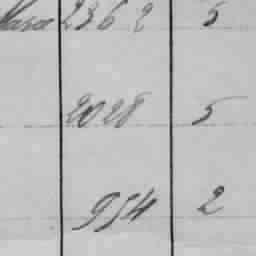 2362 5
2028 5
954 2